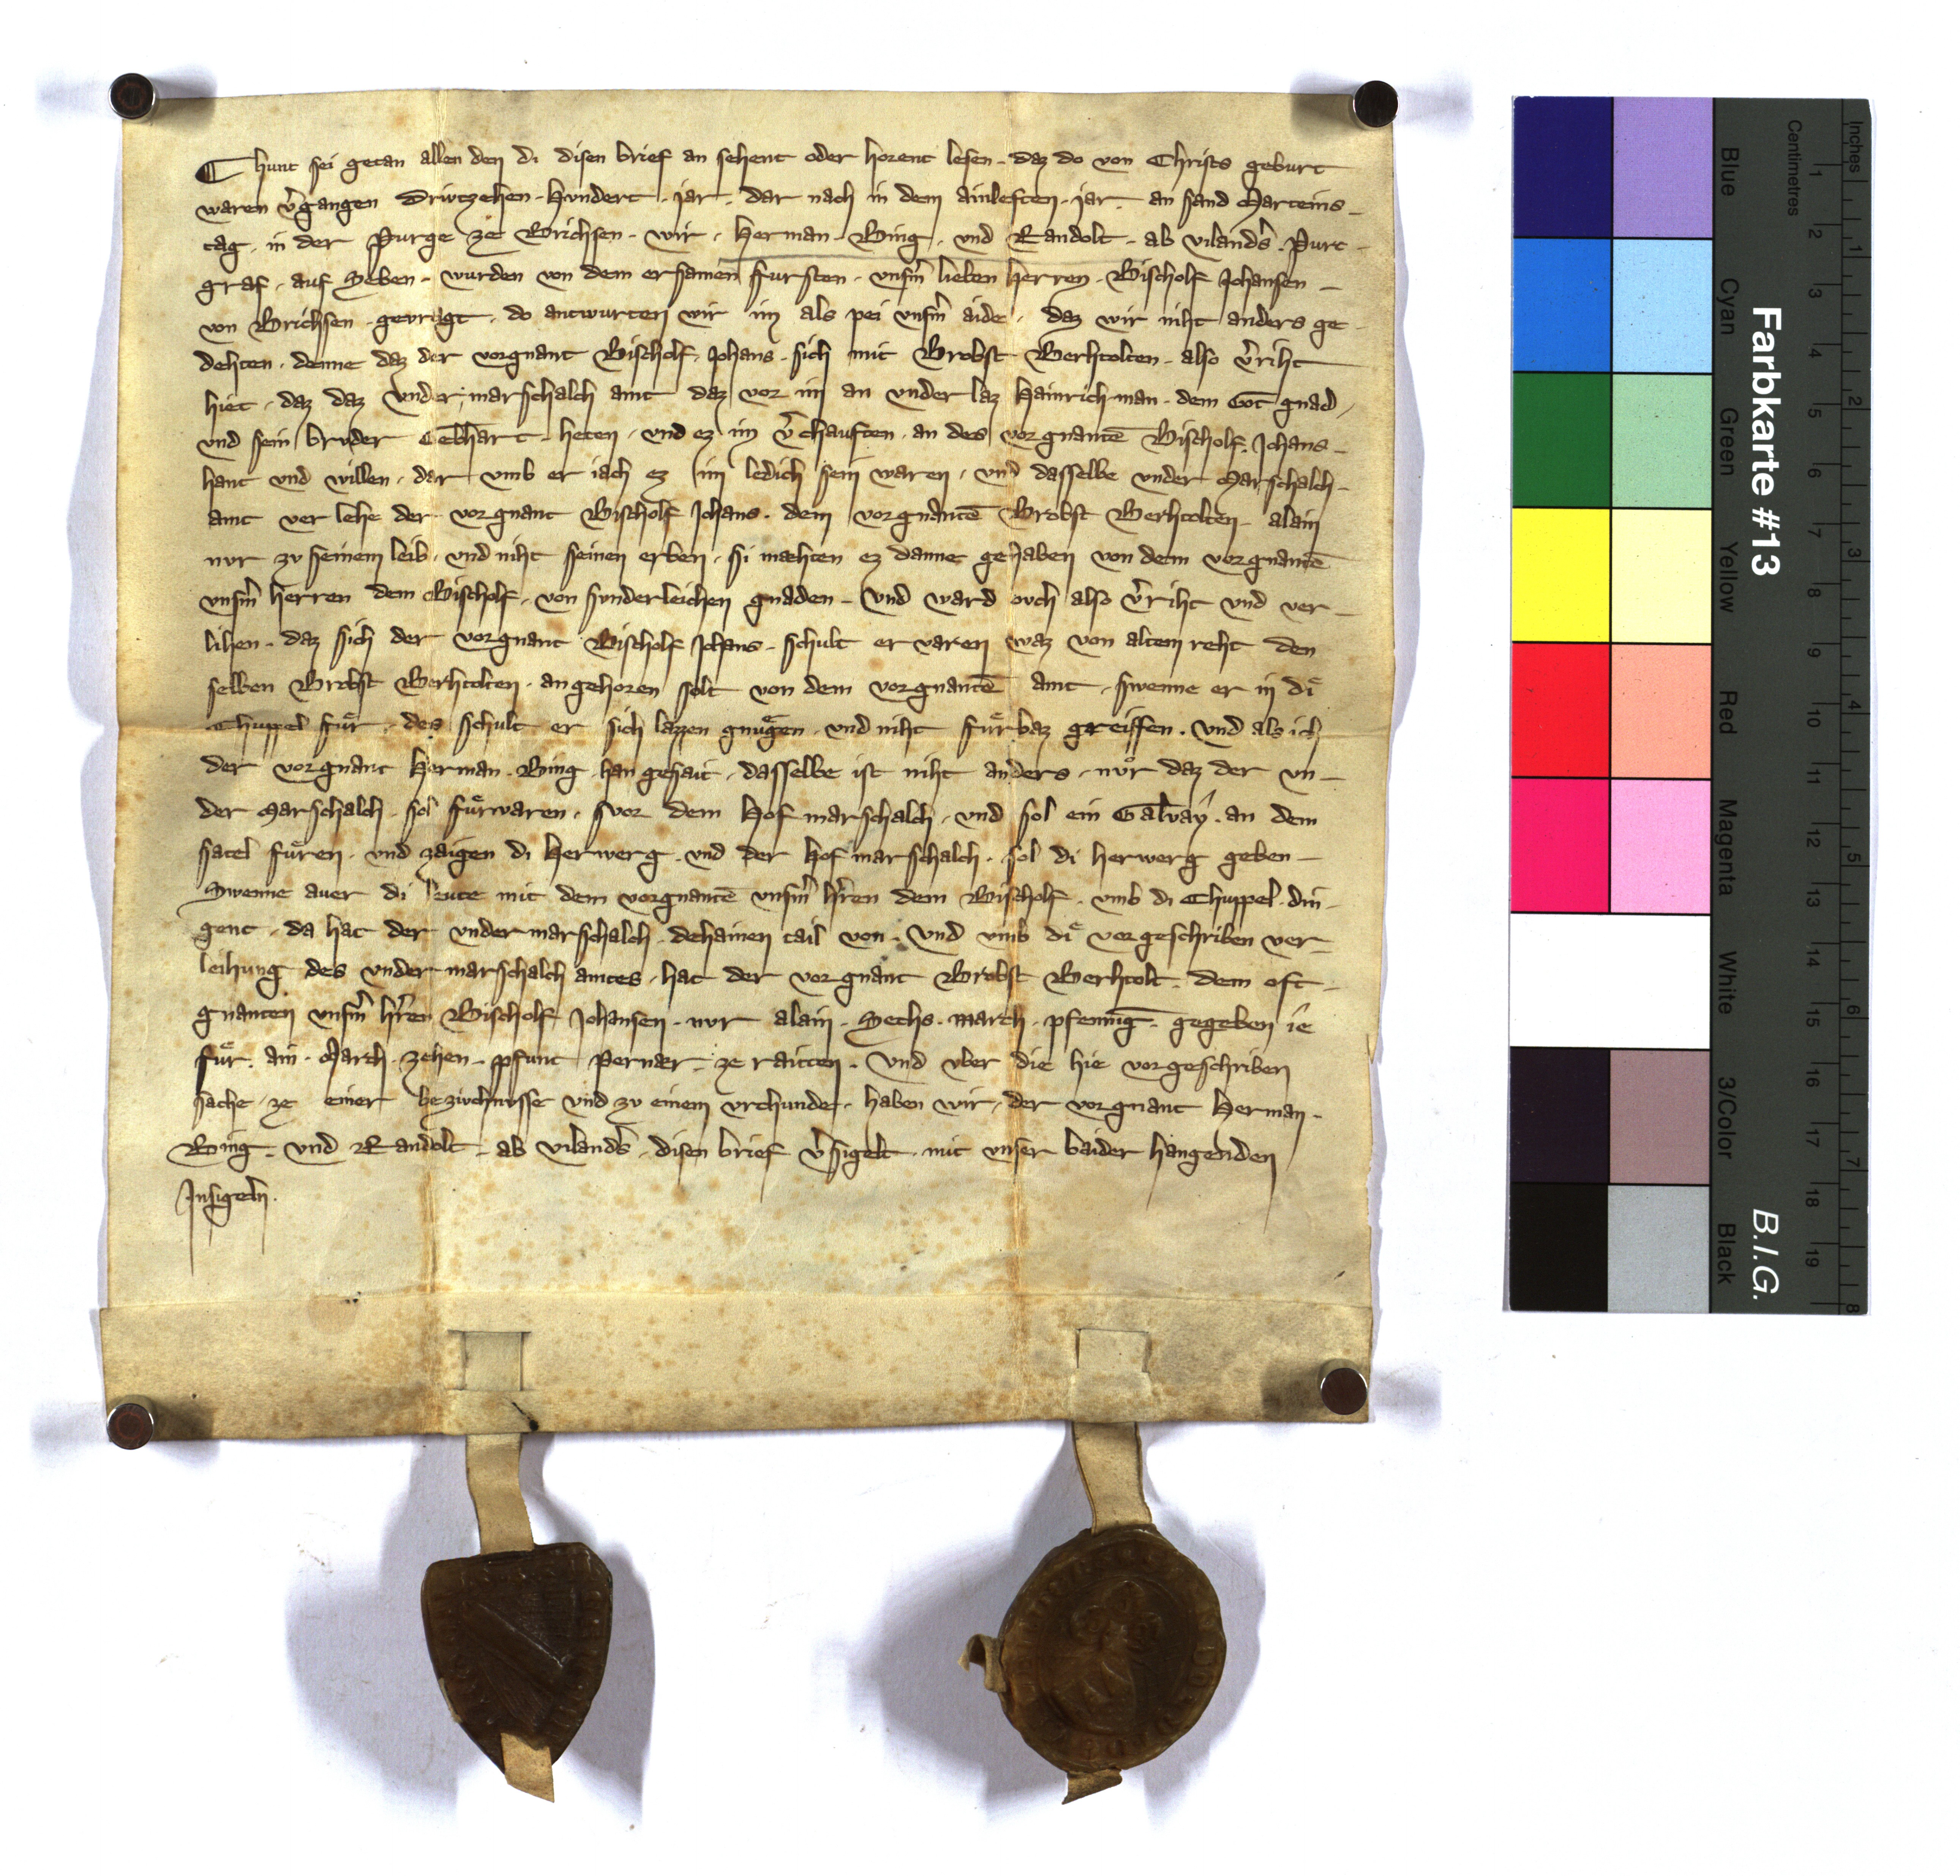 Chunt sei getan allen den di disen brief an sehent oder horent lesen. daz do von Christs geburt
waren v̾gangen Driwzehen. Hvndert. jar. dar nach in dem ainleften. jar. an sand Marteins
tag. in der Purge ze Brichsen. wir. Herman. Bing. vnd Randolt. ab vilands̾. Purc
graf. auf Seben. wurden von dem ersamen fursten. vnsm̾ lieben herren. Bischolf Johansen
von Brichsen gevragt. do antwurten wir im als pei vnsm̾ aide. daz wir niht anders ge
dehten. denne daz der vorgnant Bischolf. Johans. sich mit Brobst Berhtolten. also v̾riht
hiet. daz daz vnder marschalch amt daz vor im an vnder laz Hainrichman. dem Got gnad.
vnd sein brvder Gebhart. heten. vnd ez im v̾chauften. an des vorgnantē Bischolf. Johans
hant vnd willen. dar vmb er iach ez im ledich sein waren. vnd dasselbe vnder Marschalch
amt ver lehe der vorgnant Bischolf Johans. dem vorgnantē Brobst Berhtolten. alain
nvr zv seinem leib. vnd niht seinen erben. si mæhten ez danne gehaben von dem vorgnantē
vnsm̾ herren dem Bischolf. von svnderleichen gnaden. Vnd ward ovch also v̾riht vnd ver
lihen. daz sich der vorgnant Bischolf Johans. schult ervaren waz von altem reht den
selben Brobst Berhtolten. angehoren solt von dem vorgnantē amt. swenne er in di
Chuppel fuͤr. des schult er sich lazzen gnuͤgen. vnd niht fuͤrbaz greiffen. Vnd als ich
der vorgnant Herman. Bing. han gesait. dasselbe ist niht anders. nvͦr daz der vn
der Marschalch. sol fuͤrvaren. vor dem Hof marschalch. vnd sol ein Galvay. an dem
satel fuͤren. vnd zaigen di Herwerg. vnd der Hof marschalch. sol di herwerg geben
Swenne aver di leute mit dem vorgnantē vnsm̾ h̾ren dem Bischolf. vmb di Chuppel. din
gent. da hat der vndermarschalch. dehainen tail von. Vnd vmb di vorgeschriben ver
leihung des vnder marschalch amtes. hat der vorgnant Brobst Berhtolt. dem oft
gnanten vnsm̾ h̾ren Bischolf Johansen. nvr alain. Sechs. march. pfenning. gegeben ie
fuͤr. ain. March. zehen. pfunt Perner. ze raitten. Vnd vber die hie vorgeschriben
sache. ze einer bezivchnusse vnd zv einem vrchunde. haben wir. der vorgnant Herman.
Bing. vnd Randolt. ab vilands̾. disen brief v̾sigelt. mit vnser baider hangenden
Insigeln.
Farbkarte #13
B.I.G.
Inches
Centimetres
1 2 3 4 5 6 7 8 9 10 11 12 13 14 15 16 17 18 19
1 2 3 4 5 6 7 8
Blue
Cyan
Green
Yellow
Red
Magenta
White
3/Color
Black